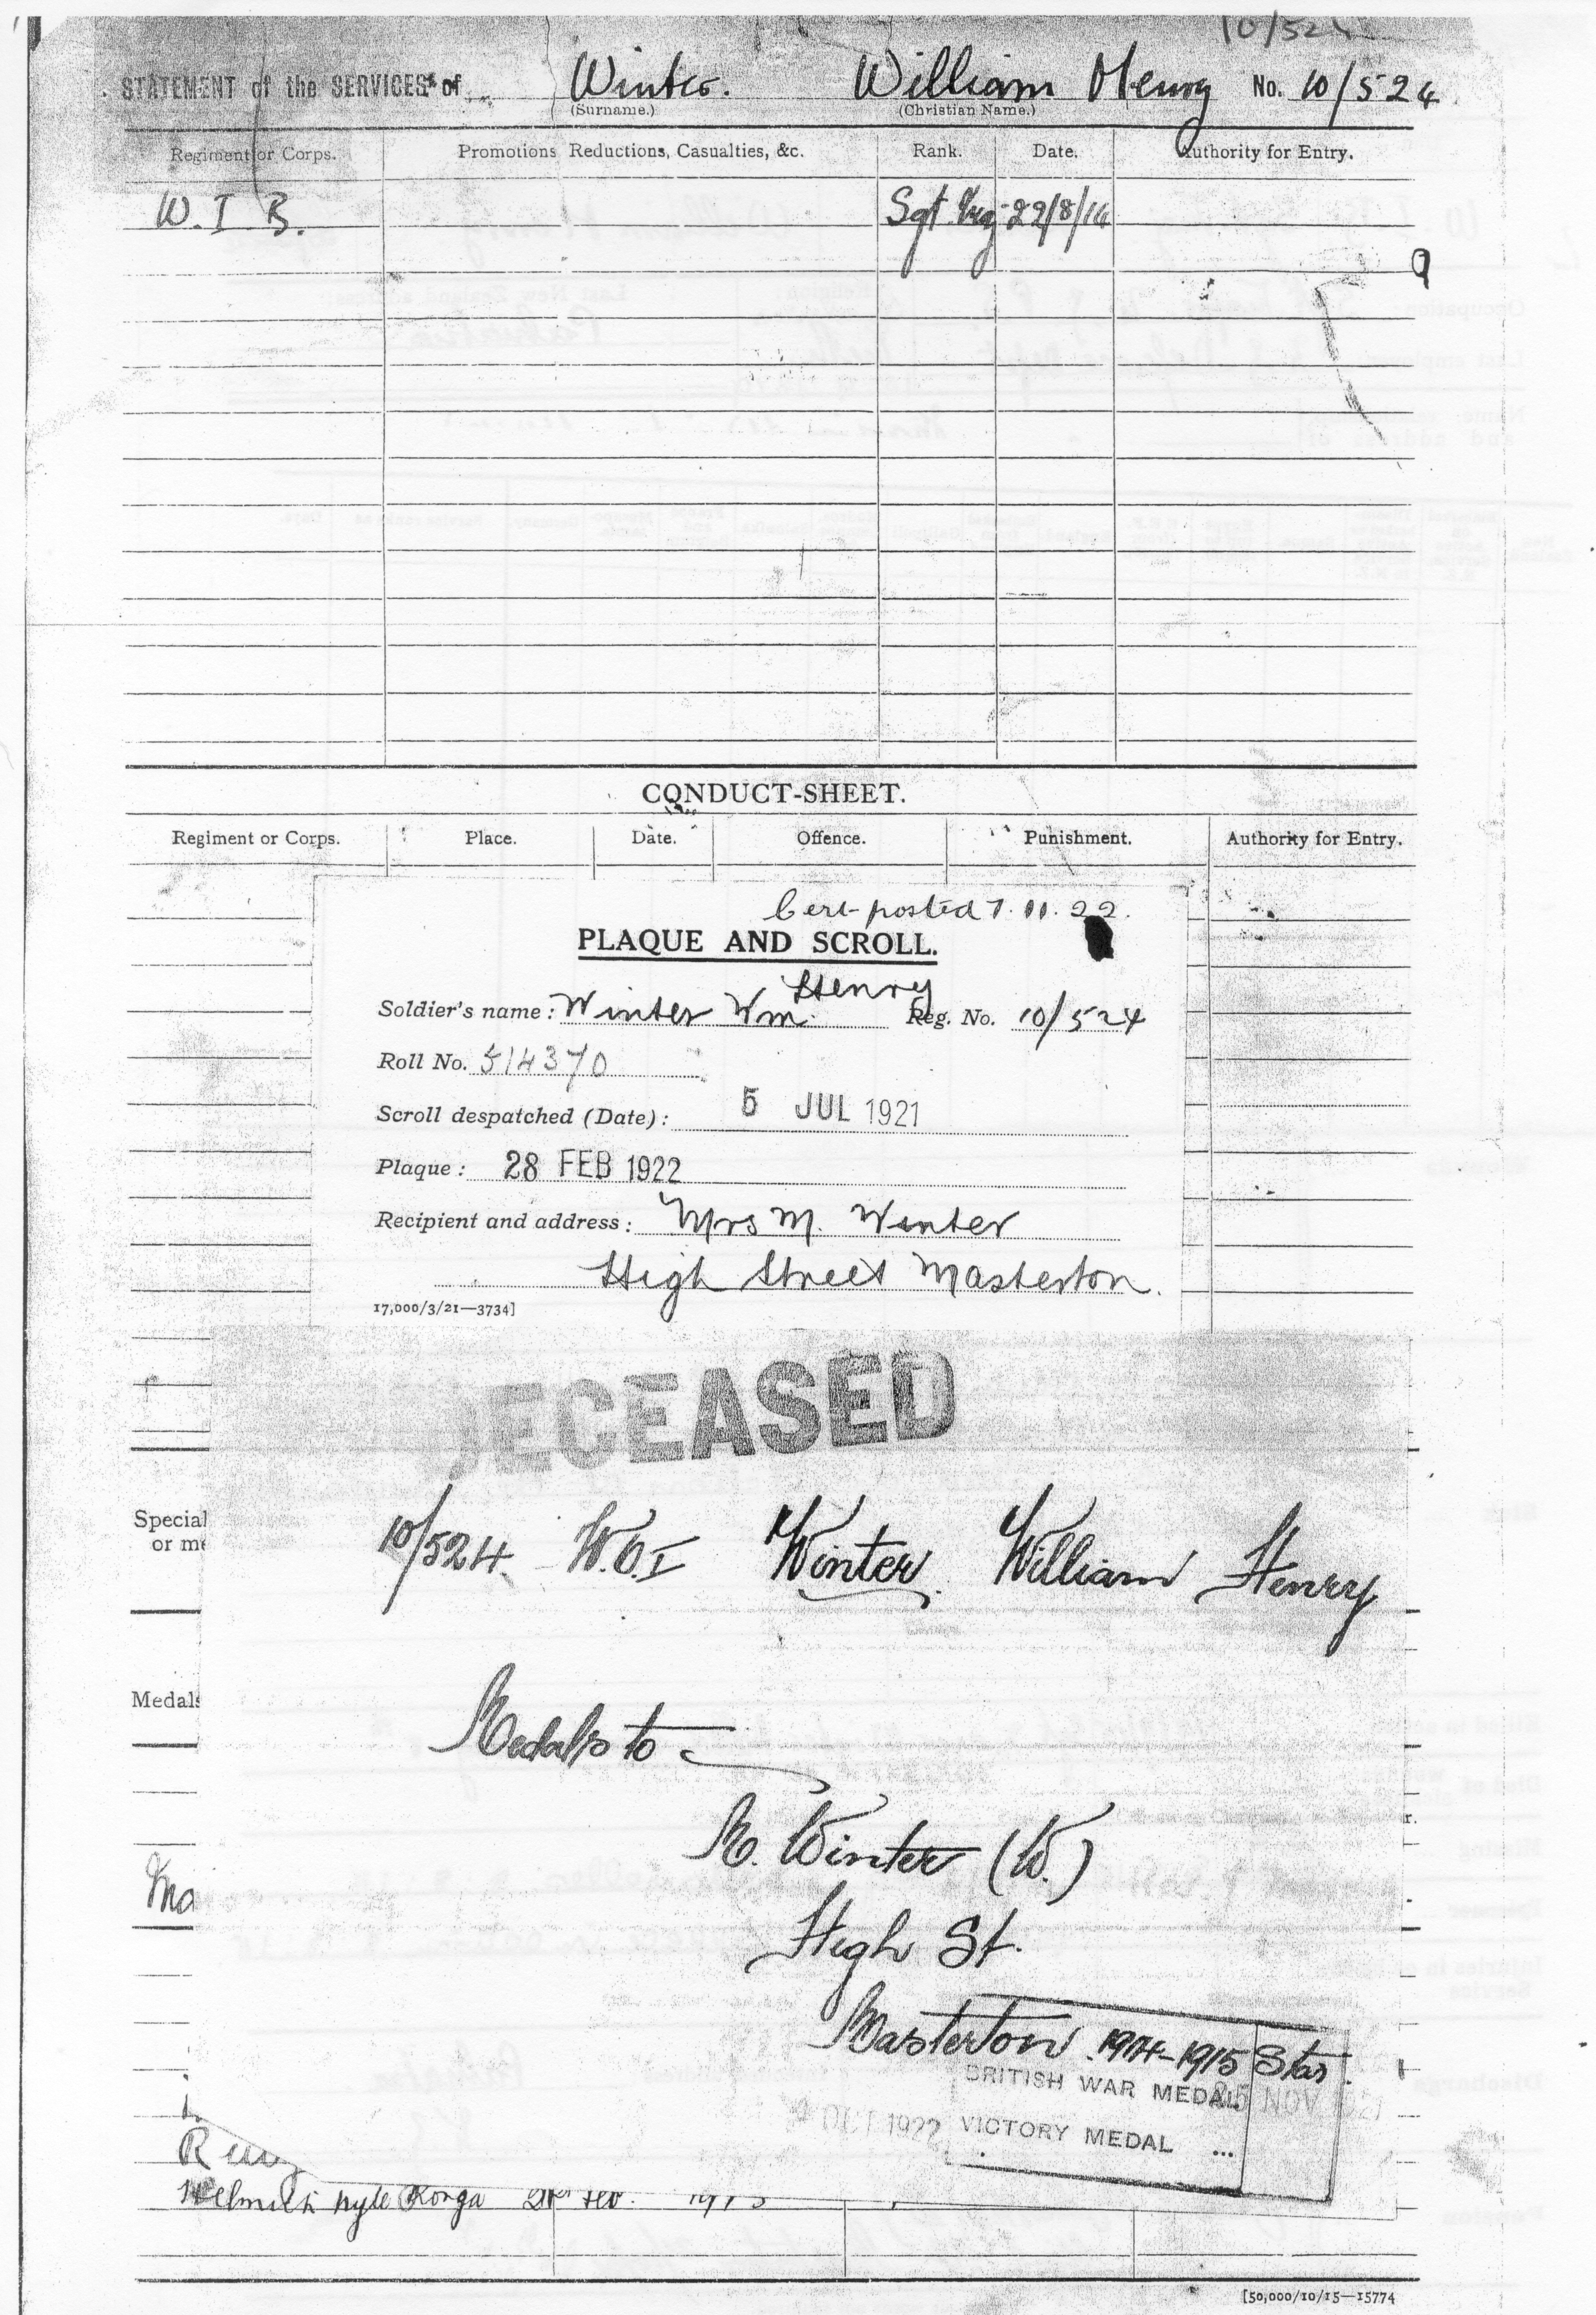 10/524
STATEMENT of the SERVICES of Winter. William Henry No. 10/524
(Surname.) (Christian Name.)
Regiment or Corps. Promotions Reductions, Casualties, &c. Rank. Date. Authority for Entry.
W. I. B. Sgt. 22/8/14
CONDUCT-SHEET.
Regiment or Corps. Place. Date. Offence. Punishment. Authority for Entry.
Cert posted 7. 11. 22.
PLAQUE AND SCROLL.
Henry
Soldier's name: Winter Wm. Reg. No. 10/524
Roll No. 514370
Scroll despatched (Date): 5 JUL 1921
Plaque: 28 FEB 1922
Recipient and address: Mrs M. Winter
High Street Masterton.
17,000/3/21—3734]
DECEASED
10/524. W.O.I Winter William Henry
Special
or me
Medals
Medals to
M. Winter (W.)
Ma
High St.
Masterton. 1914-1915 Star.
BRITISH WAR MEDAL 25 NOV 1921
OCT 1922 VICTORY MEDAL ...
[50,000/10/15—15774